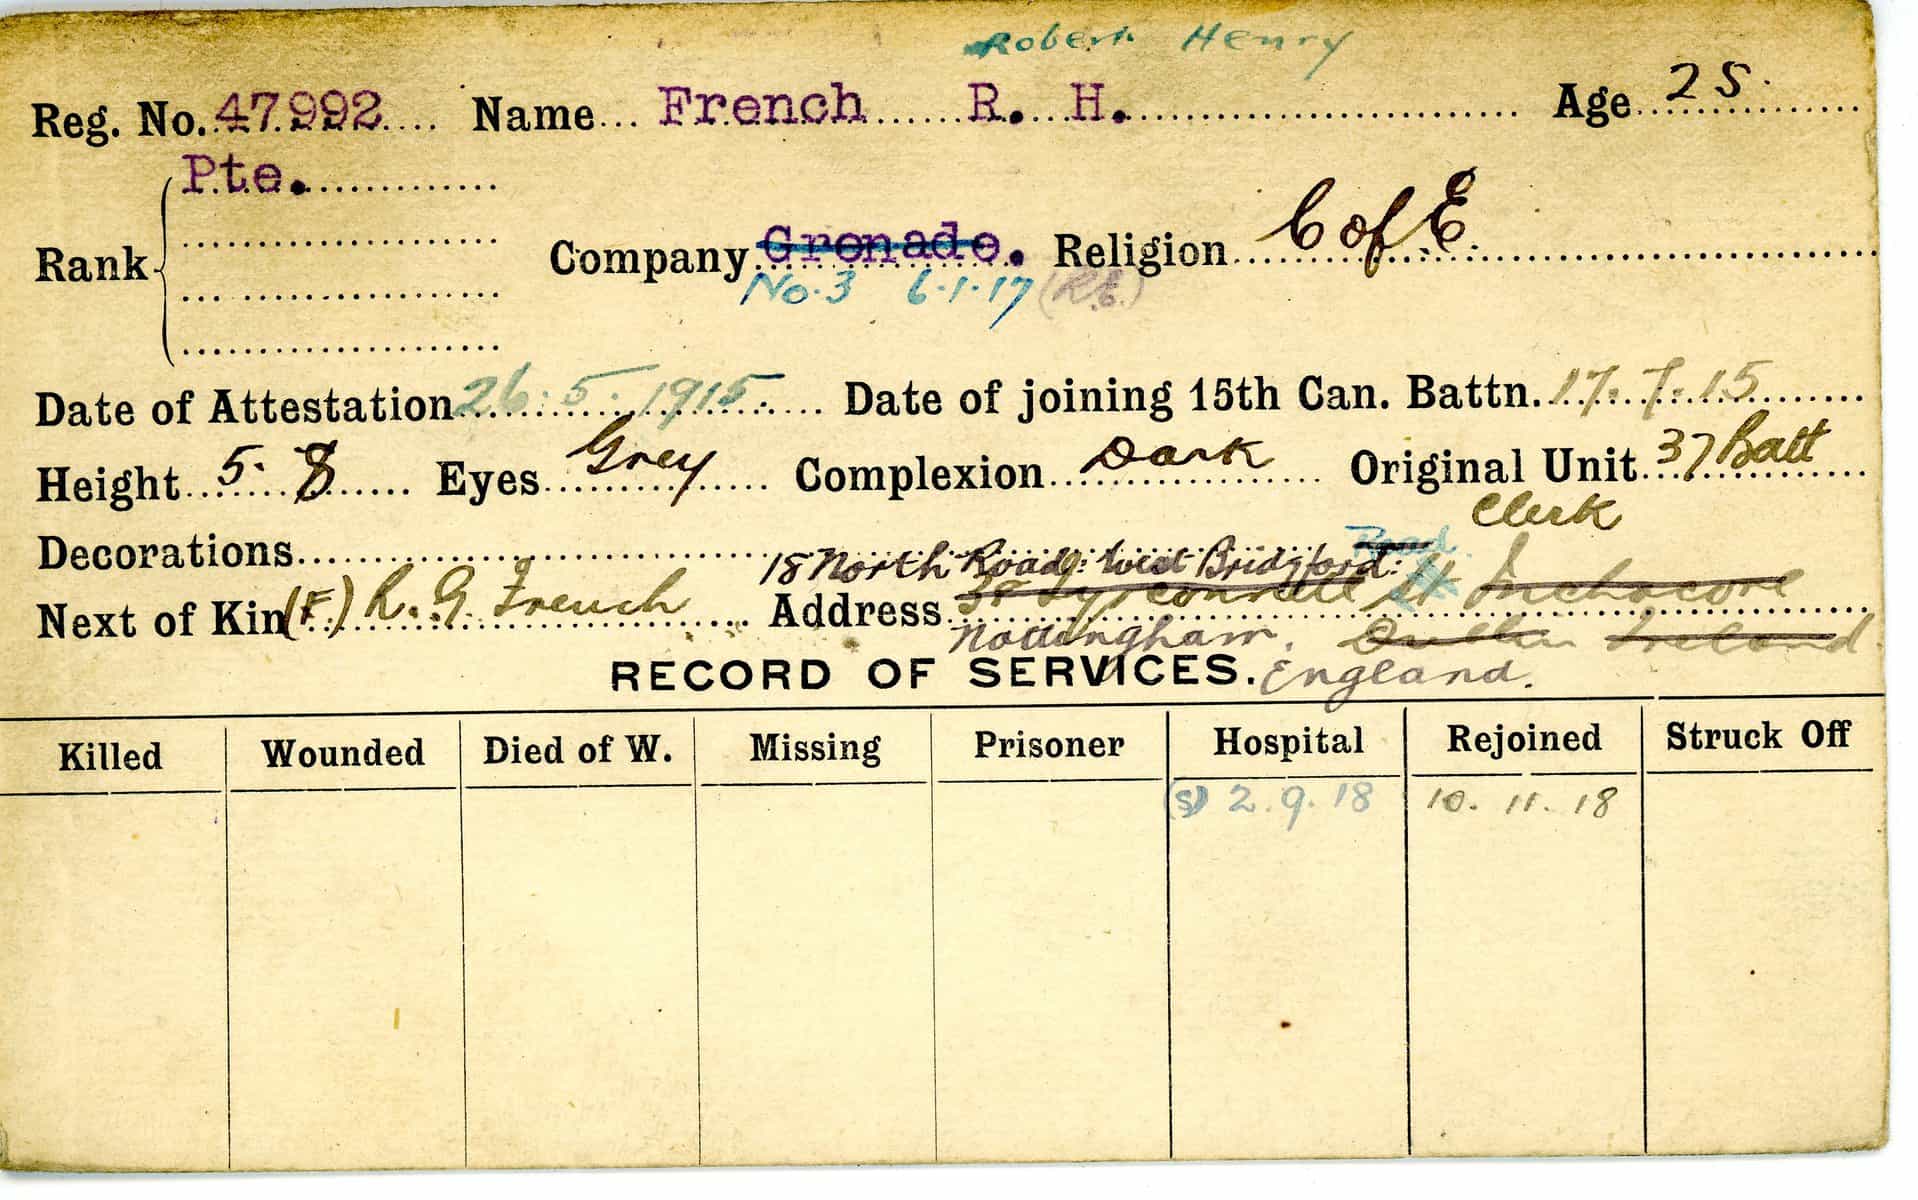 Robert Henry
Reg. No. 47992 Name French R. H. Age 25.
Pte.
Rank Company Grenade. Religion C of E.
No. 3 6.1.17 (R.E.)
Date of Attestation 26.5.1915 Date of joining 15th Can. Battn. 17.7.15
Height 5. 8 Eyes Grey Complexion Dark Original Unit 37 Batt
Clerk
Decorations Road
18 North Road: West Bridgford:
Next of Kin (F) R. G. French Address 38 Tyrconnell St Inchacore
Nottingham. Dublin Ireland.
RECORD OF SERVICES. England.
Killed Wounded Died of W. Missing Prisoner Hospital Rejoined Struck Off
(S) 2.9.18 10.11.18